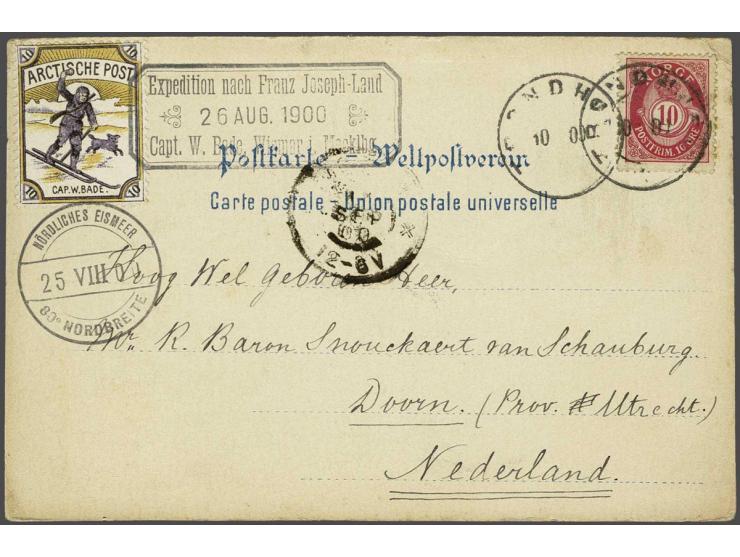 10 10
ARCTISCHE POST
CAP. W. BADE.
10 10
Expedition nach Franz Joseph-Land
26 AUG. 1900
Capt. W. Bade, Wismar i. Mecklbg.
TRONDHJ
10
TRONDHJ
NORGE
10
POSTFRIM. 10 ØRE
Postkarte – Weltpostverein
Carte postale – Union postale universelle
SEP
00
12-6V
NÖRDLICHES EISMEER
25 VIII 00
80° NORDBREITE
Hoog Wel Geboren Heer,
Mr. R. Baron Snouckaert van Schauburg.
Doorn. (Prov. Utrecht.)
Nederland.